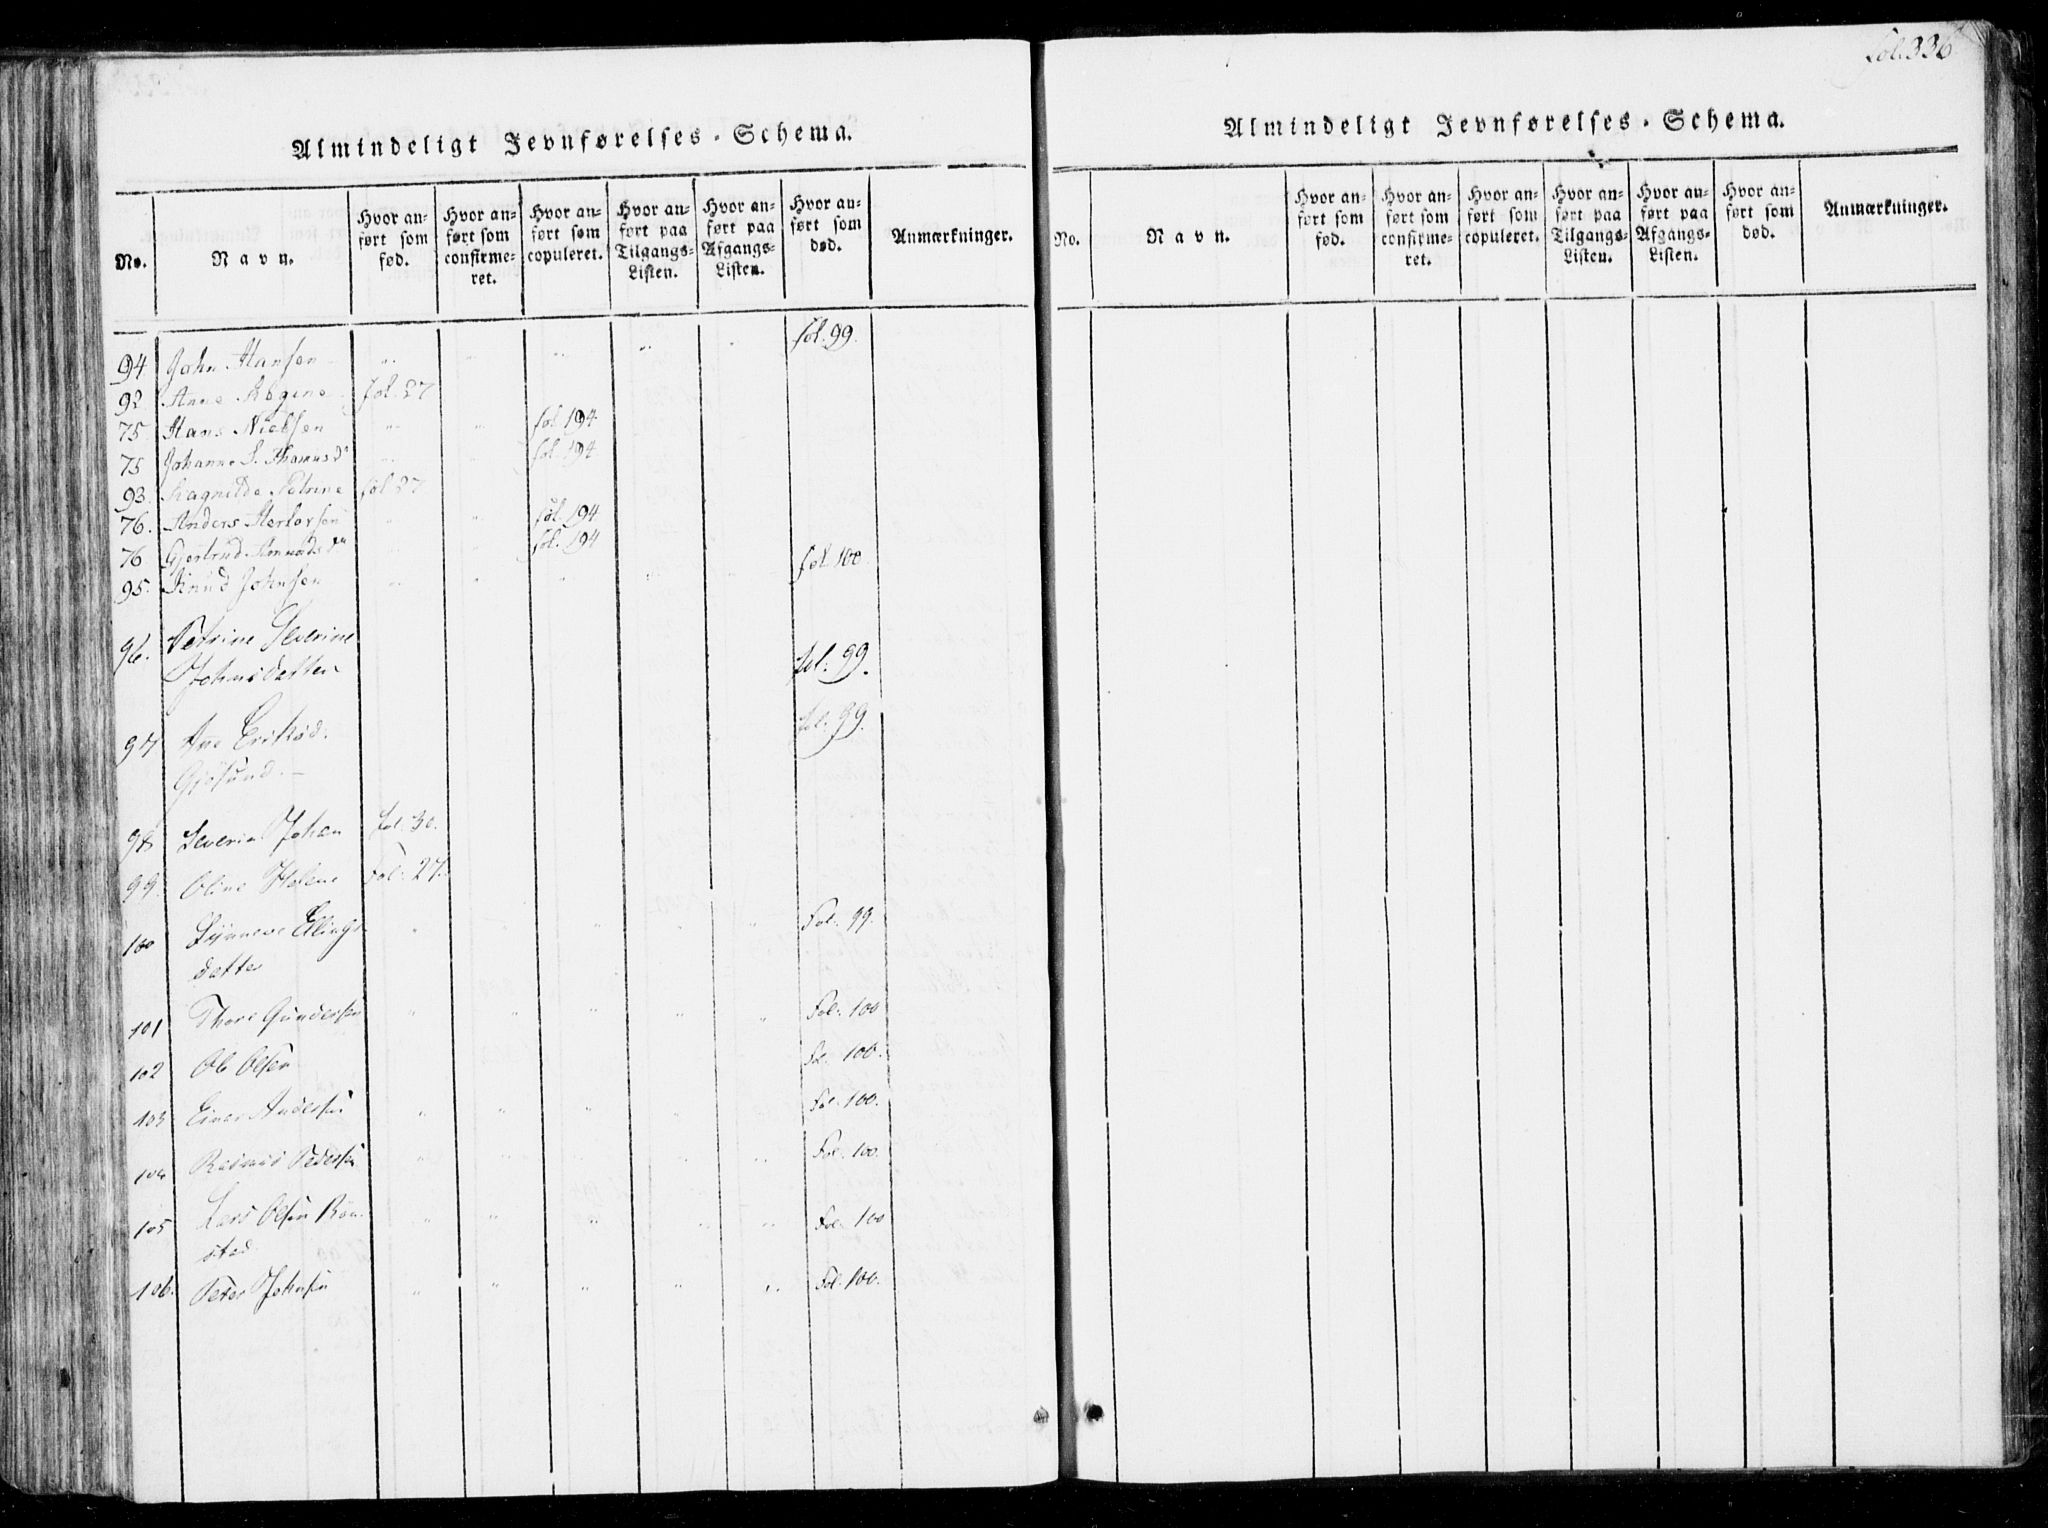 Almindeligt Jevnførelses-Schema.
No. Navn. Hvor anført som fød. Hvor anført som confirmeret. Hvor anført som copuleret. Hvor anført paa Tilgangs-Listen. Hvor anført paa Afgangs-Listen. Hvor anført som død. Anmærkninger.
94 John Hansen " " " " " fol. 99.
92 Anne Regine fol. 27
75 Hans Nielsen " " fol 194
75 Johanne S. Thomasd. " " fol. 194
93. Ragnilde Petrine fol 27
76. Anders Herlofsen " " fol. 194
76 Gjertrud Amundsd. " " fol. 194
95. Knud Johnsen " " " " " fol. 100.
96. Petrine Severine
Johnsdatter fol: 99.
97 Ane Eriksd. fol. 99.
Gjøsund. –
98 Severin Johan fol. 30.
99. Oline Helene Fol. 27.
100 Synneve Ellings " " " " " Fol. 99.
datter
101 Thore Gundersen " " " " " Fol. 100
102 Ole Olsen Fol. 100.
103 Einer Andersen " " " " Fol. 100.
104 Rasmus Pedersen " " " " " Fol. 100.
105 Lars Olsen Røn- " " " " " Fol. 100
stad
106. Peder Johnsen " " " " " Fol. 100.
Fol. 336
Almindeligt Jevnførelses-Schema.
No. Navn. Hvor anført som fød. Hvor anført som confirmeret. Hvor anført som copuleret. Hvor anført paa Tilgangs-Listen. Hvor anført paa Afgangs-Listen. Hvor anført som død. Anmærkninger.